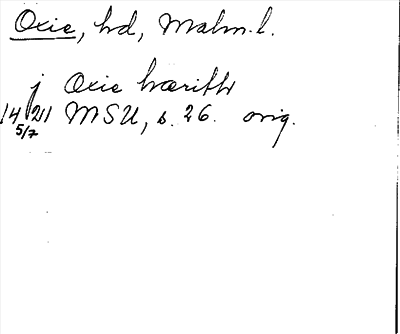 Oxie, hd, Malm. l.
j Oxie hærith
14 5/7 21 MSU, s. 26. orig.